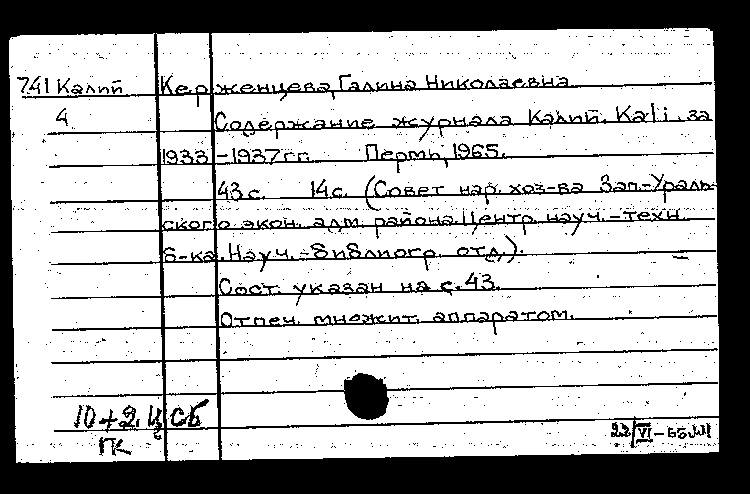 741 Калий Керженцева, Галина Николаевна
4 Содержание журнала Калий. Kali. за
1933-1937 гг. Пермь, 1965.
43 с. 14 с. (Совет нар. хоз-ва Зап.-Ураль-
ского экон. адм. района. Центр. науч.-техн.
б-ка. Науч.-библиогр. отд.).
Сост. указан на с. 43.
Отпеч. множит. аппаратом.
10+2. Ц СБ
ПК